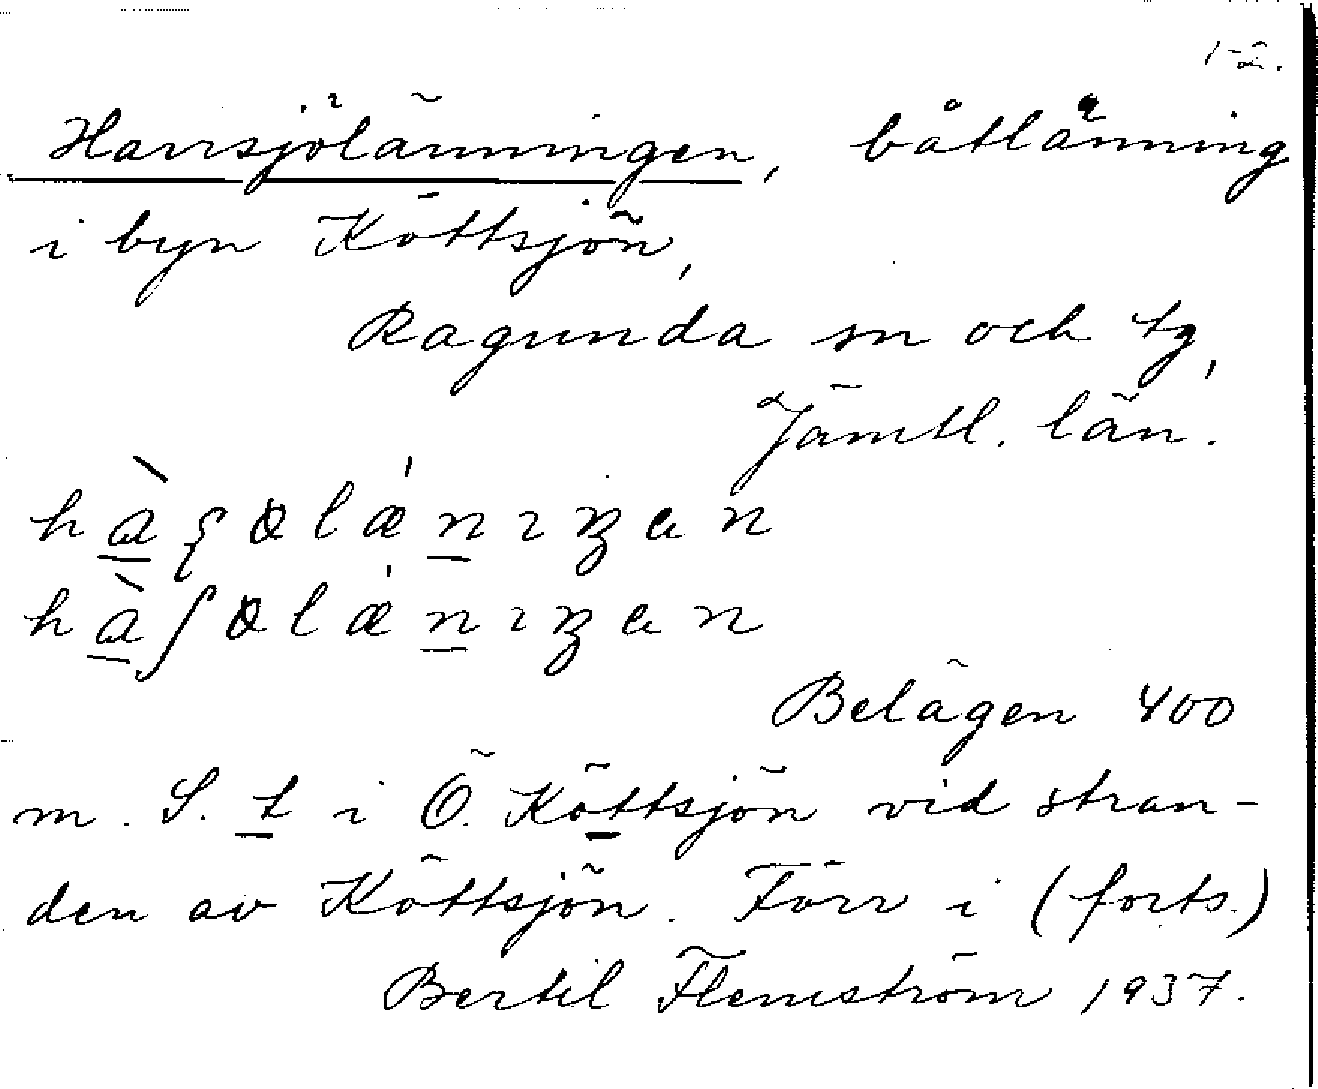 1-2.
Harrsjölänningen, båtlänning
i byn Köttsjön,
Ragunda sn och tg,
Jämtl. län.
Belägen 400
m. S. t i Ö. Köttsjön vid stran-
den av Köttsjön. Förr i (forts.)
Bertil Flemström 1937.